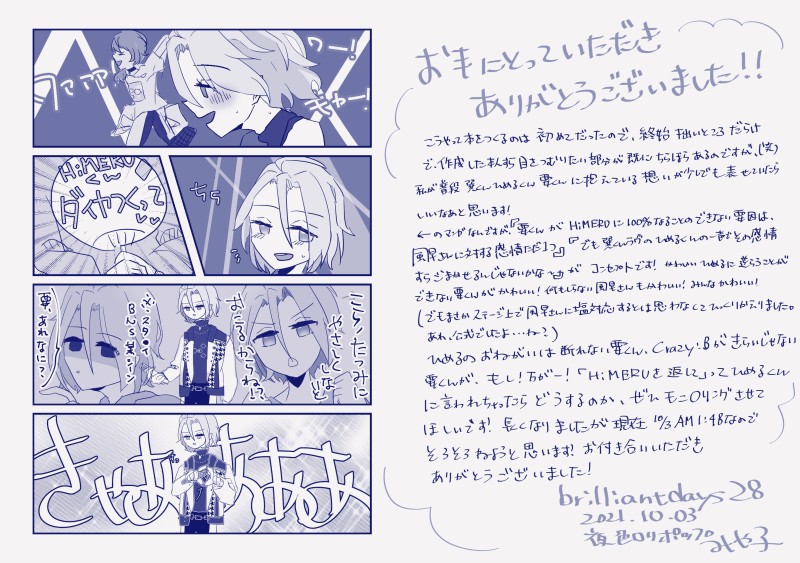 ワー!
キャー!
ファアア!
HiMERU
くん
ダイヤつくって
ちら
こら!たつみに
やさしく
しないと
おこるからね!?
要、あれなに?
きゃああああああ
お手にとっていただき
ありがとうございました!!
こうやって本をつくるのは初めてだったので、終始拙いところだらけ
で、作成した本人が目をつむりたい部分が既にちらほらあるのですが、(笑)
私が普段巽くんひめるくん要くんに抱えている想いが少しでも表せていたら
いいなあと思います!
←のマンガなんですが『要くんがHiMERUに100%なることのできない要因は、
風早さんに対する感情だし』『でも巽くんラヴのひめるくんの一面がその感情
すらごまかせるんじゃないかな〜』がコンセプトです!かわいいひめるに逆らうことが
できない要くんがかわいい!何もしらない風早さんもかわいい!みんなかわいい!
(でもまさかステージ上で風早さんに塩対応するとは思わなくてびっくりがえりました。
あれ、公式でしたよ…ね?)
ひめるのおねがいは断れない要くん、Crazy:Bがきらいじゃない
要くんが、もし!万が一!「HiMERUを返して」ってひめるくん
に言われちゃったらどうするのか、ぜひモニタリングさせて
ほしいです!長くなりましたが現在10/3 AM1:48なので
そろそろねようと思います!お付き合いいただき
ありがとうございました!
brilliantdays 28
2021.10.03
夜色ロリポップ
みや子